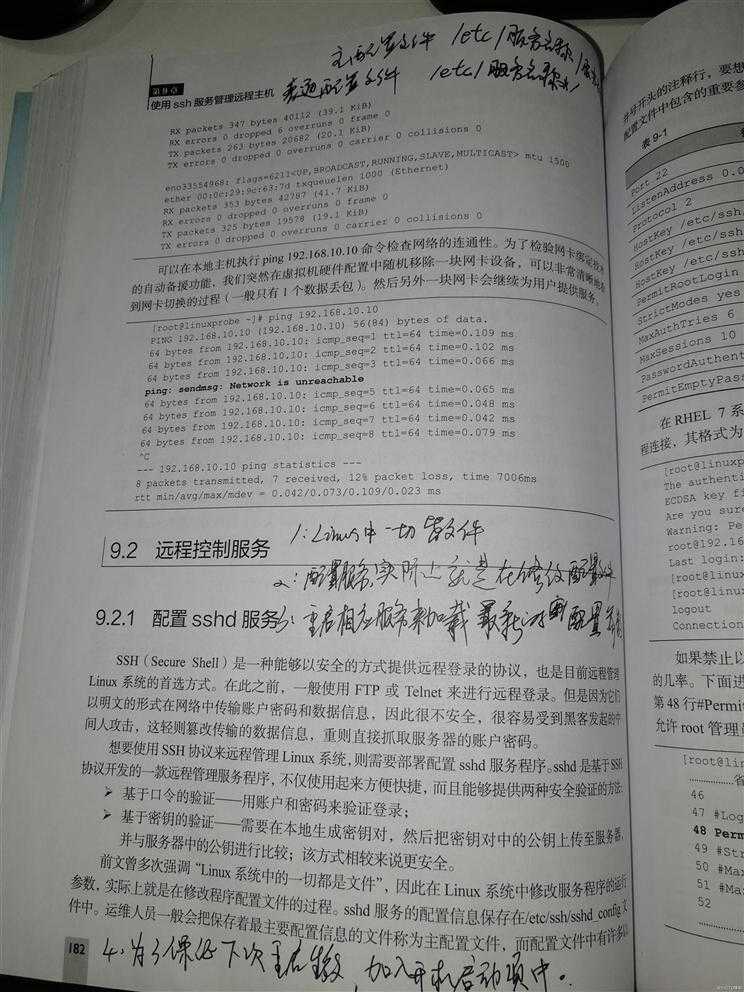 主配置文件 /etc/服务名称/
普通配置文件 /etc/服务名称/
第9章
使用 ssh 服务管理远程主机
RX packets 347 bytes 40112 (39.1 KiB)
RX errors 0 dropped 6 overruns 0 frame 0
TX packets 263 bytes 20682 (20.1 KiB)
TX errors 0 dropped 0 overruns 0 carrier 0 collisions 0
eno33554968: flags=6211<UP,BROADCAST,RUNNING,SLAVE,MULTICAST> mtu 1500
ether 00:0c:29:9c:63:7d txqueuelen 1000 (Ethernet)
RX packets 353 bytes 42787 (41.7 KiB)
RX errors 0 dropped 0 overruns 0 frame 0
TX packets 325 bytes 19578 (19.1 KiB)
TX errors 0 dropped 0 overruns 0 carrier 0 collisions 0
可以在本地主机执行 ping 192.168.10.10 命令检查网络的连通性。为了检验网卡绑定技术
的自动备援功能，我们突然在虚拟机硬件配置中随机移除一块网卡设备，可以非常清晰地看
到网卡切换的过程（一般只有 1 个数据丢包）。然后另外一块网卡会继续为用户提供服务。
[root@linuxprobe ~]# ping 192.168.10.10
PING 192.168.10.10 (192.168.10.10) 56(84) bytes of data.
64 bytes from 192.168.10.10: icmp_seq=1 ttl=64 time=0.109 ms
64 bytes from 192.168.10.10: icmp_seq=2 ttl=64 time=0.102 ms
64 bytes from 192.168.10.10: icmp_seq=3 ttl=64 time=0.066 ms
ping: sendmsg: Network is unreachable
64 bytes from 192.168.10.10: icmp_seq=5 ttl=64 time=0.065 ms
64 bytes from 192.168.10.10: icmp_seq=6 ttl=64 time=0.048 ms
64 bytes from 192.168.10.10: icmp_seq=7 ttl=64 time=0.042 ms
64 bytes from 192.168.10.10: icmp_seq=8 ttl=64 time=0.079 ms
^C
--- 192.168.10.10 ping statistics ---
8 packets transmitted, 7 received, 12% packet loss, time 7006ms
rtt min/avg/max/mdev = 0.042/0.073/0.109/0.023 ms
1: Linux中一切皆文件
9.2 远程控制服务
2: 配置服务实际上就是在修改配置文件
9.2.1 配置 sshd 服务
3: 重启相应服务来加载最新的配置
SSH（Secure Shell）是一种能够以安全的方式提供远程登录的协议，也是目前远程管理
Linux 系统的首选方式。在此之前，一般使用 FTP 或 Telnet 来进行远程登录。但是因为它们
以明文的形式在网络中传输账户密码和数据信息，因此很不安全，很容易受到黑客发起的中
间人攻击，这轻则篡改传输的数据信息，重则直接抓取服务器的账户密码。
想要使用 SSH 协议来远程管理 Linux 系统，则需要部署配置 sshd 服务程序。sshd 是基于 SSH
协议开发的一款远程管理服务程序，不仅使用起来方便快捷，而且能够提供两种安全验证的方法：
➤ 基于口令的验证——用账户和密码来验证登录；
➤ 基于密钥的验证——需要在本地生成密钥对，然后把密钥对中的公钥上传至服务器，
并与服务器中的公钥进行比较；该方式相较来说更安全。
前文曾多次强调“Linux 系统中的一切都是文件”，因此在 Linux 系统中修改服务程序的运行
参数，实际上就是在修改程序配置文件的过程。sshd 服务的配置信息保存在/etc/ssh/sshd_config 文
件中。运维人员一般会把保存着最主要配置信息的文件称为主配置文件，而配置文件中有许多以
182
4. 为了保证下次重启生效，加入开机启动项中。
井号开头的注释行，要想
配置文件中包含的重要参
表 9-1
Port 22
ListenAddress 0.0
Protocol 2
HostKey /etc/ssh
HostKey /etc/ssh
HostKey /etc/ssh
PermitRootLogin
StrictModes yes
MaxAuthTries 6
MaxSessions 10
PasswordAuthent
PermitEmptyPass
在 RHEL 7 系
程连接，其格式为
[root@linuxp
The authenti
ECDSA key fi
Are you sure
Warning: Pe
root@192.16
Last login:
[root@linu
[root@linu
logout
Connection
如果禁止以
的几率。下面进
第 48 行#Permi
允许 root 管理
[root@lin
46
47 #Log
48 Perm
49 #Str
50 #Max
51 #Max
52